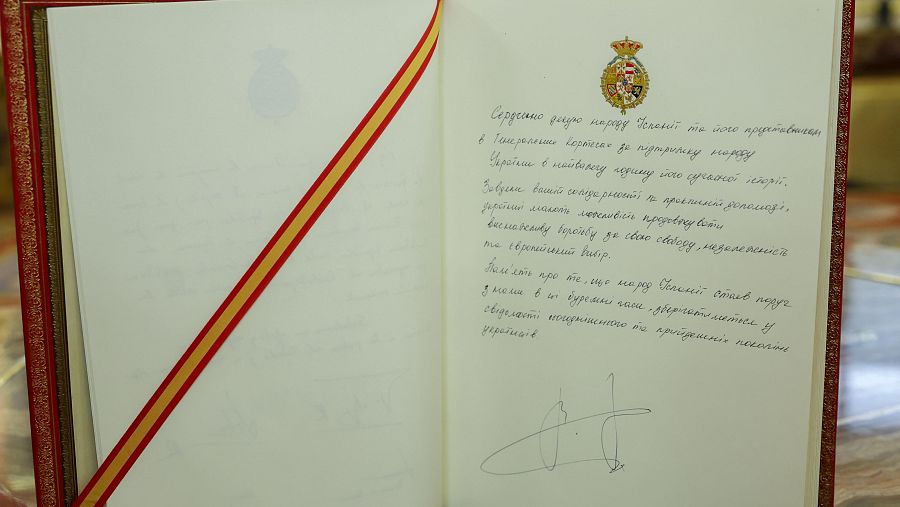 Сердечно дякую народу Іспанії та його представникам
в Генеральних Кортесах за підтримку народу
України в найважчу годину його сучасної історії.
Завдяки вашій солідарності та практичній допомозі,
українці мають можливість продовжувати
виснажливу боротьбу за свою свободу, незалежність
та європейський вибір.
Пам'ять про те, що народ Іспанії стояв поруч
з нами в ці буремні часи, зберігатиметься у
свідомості сьогоднішнього та прийдешніх поколінь
українців.